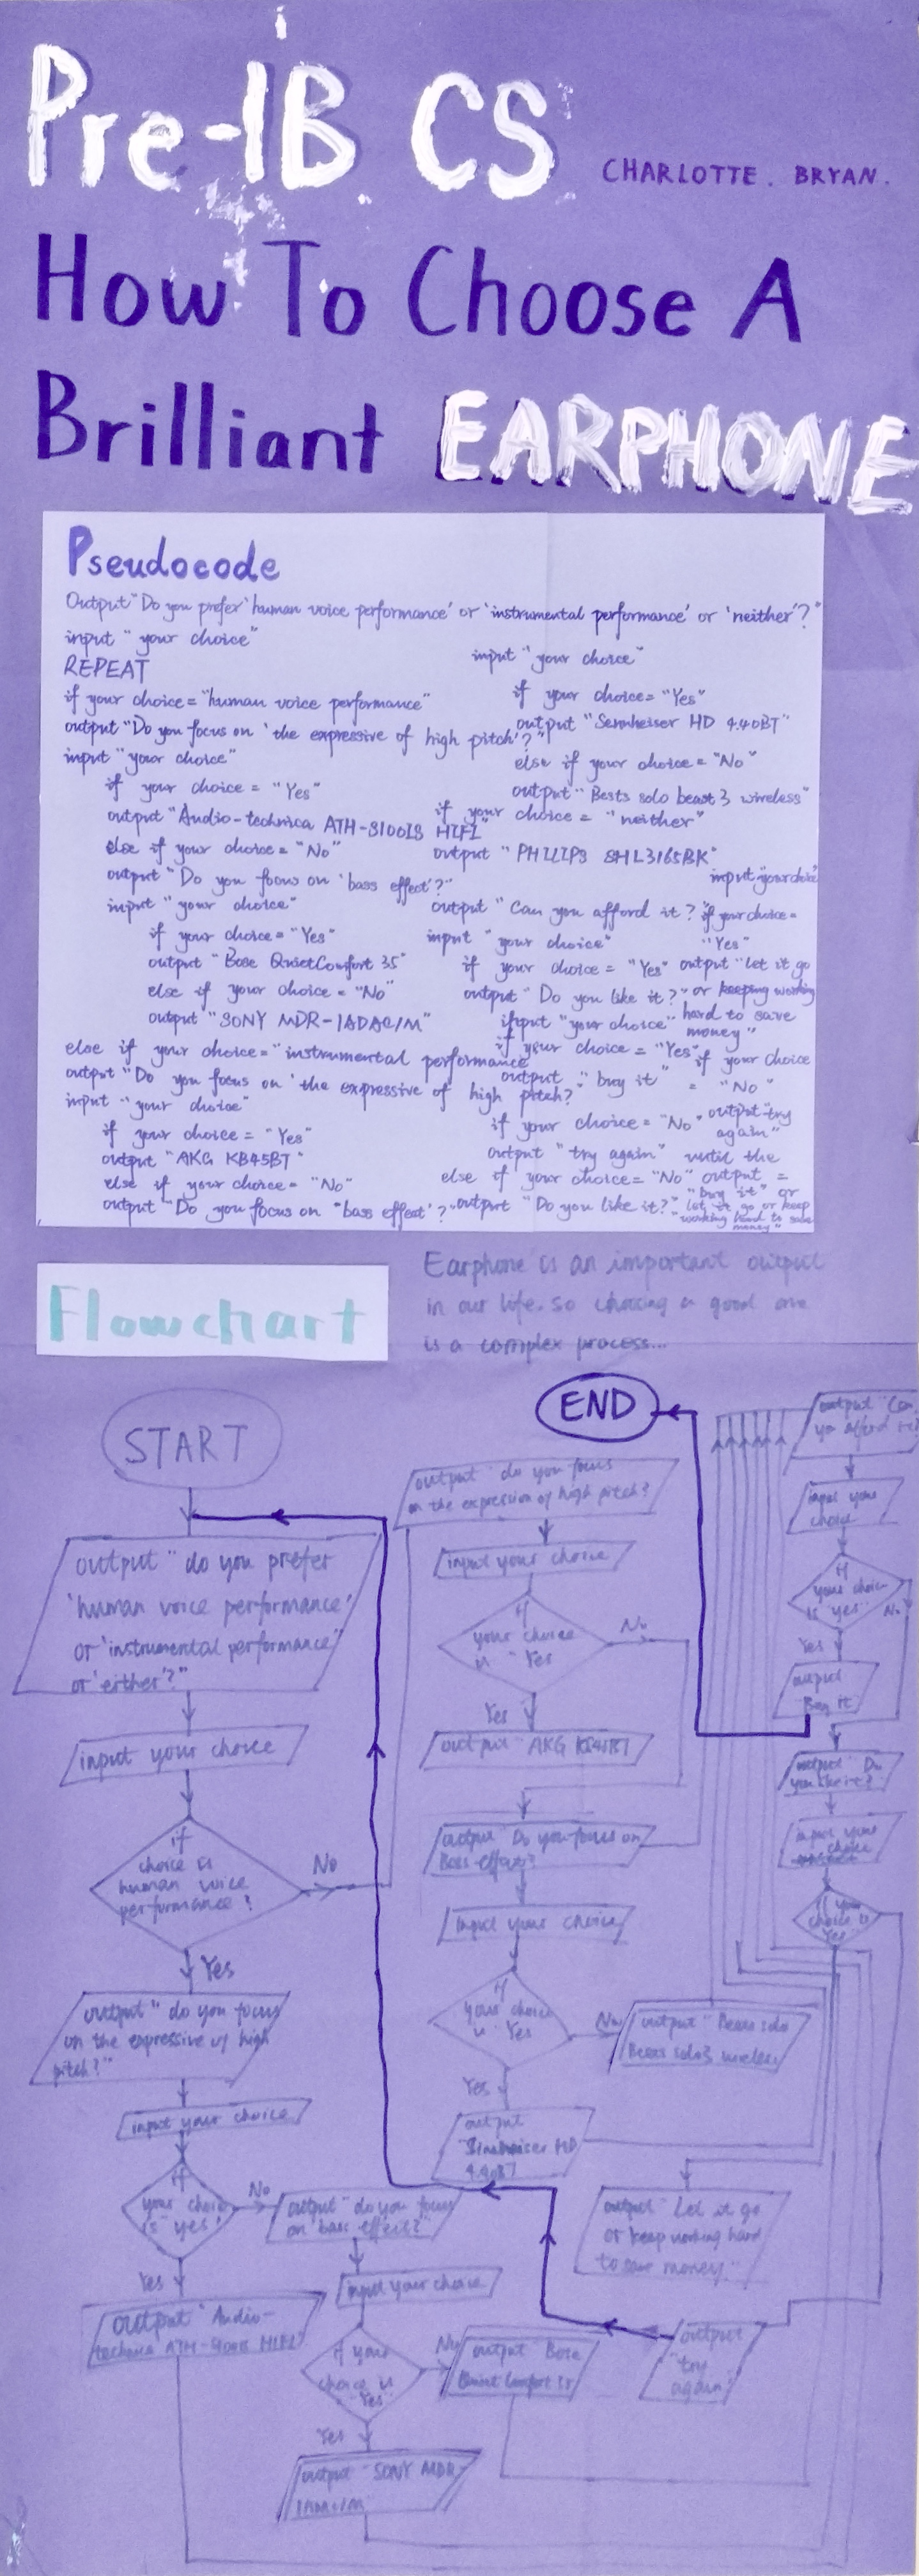 Pre-IB CS
CHARLOTTE. BRYAN.
How To Choose A
Brilliant EARPHONE
Pseudocode
Output "Do you prefer 'human voice performance' or 'instrumental performance' or 'neither'?"
input "your choice"
REPEAT
if your choice = "human voice performance"
output "Do you focus on 'the expressive of high pitch'?"
input "your choice"
if your choice = "Yes"
output "Audio-technica ATH-S100IS HIFI"
else if your choice = "No"
output "Do you focus on 'bass effect'?"
input "your choice"
if your choice = "Yes"
output "Bose QuietComfort 35"
else if your choice = "No"
output "SONY MDR-1ADAC/M"
else if your choice = "instrumental performance
output "Do you focus on 'the expressive of high pitch?
input "your choice"
if your choice = "Yes"
output "AKG K845BT"
else if your choice = "No"
output "Do you focus on "bass effect'?"
input "your choice"
if your choice = "Yes"
output "Sennheiser HD 4.40BT"
else if your choice = "No"
output "Bests solo beast 3 wireless"
if your choice = "neither"
output "PHILIPS SHL3165BK"
output "Can you afford it?
input "your choice"
if your choice = "Yes"
output "Do you like it?"
input "your choice"
if your choice = "Yes"
output "buy it"
if your choice = "No"
output "try again"
else if your choice = "No"
output "Do you like it?"
input "your choice"
if your choice =
"Yes"
output "let it go
or keeping working
hard to save
money"
if your choice
= "No"
output "try
again"
until the
output =
"buy it" or
let it go or keep
working hard to save
money"
Flowchart
Earphone is an important output
in our life. So choosing a good one
is a complex process...
START
output "do you prefer
'human voice performance'
or 'instrumental performance"
or 'either'?"
input your choice
if
choice is
human voice
performance?
No
Yes
output "do you focus
on the expressive of high
pitch?"
input your choice
if
your choice
is "yes"
No
Yes
output "Audio-
technica HIFI"
output "do you focus
on "bass effect?"
input your choice
if your
choice is
"Yes"
No
output "Bose
Quiet Comfort
Yes
output "SONY MDR-
1ADAC/M
output "do you focus
on the expression of high pitch?
input your choice
if
your choice
is "Yes
No
Yes
output "AKG K845BT
output "Do you focus on
Bass effect?
input your choice
if
your choice
is "Yes
No
output "Beats solo
Beats solo3 wireless
Yes
output
"Sennheiser HD
4.40BT
END
output "Can
you afford it?
input your
choice
if
your choice
is "yes"
No
Yes
output
"Buy it
output "Do
you like it?
input your
choice
if your
choice is
Yes
output "Let it go
or keep working hard
to save money"
output
"try
again"